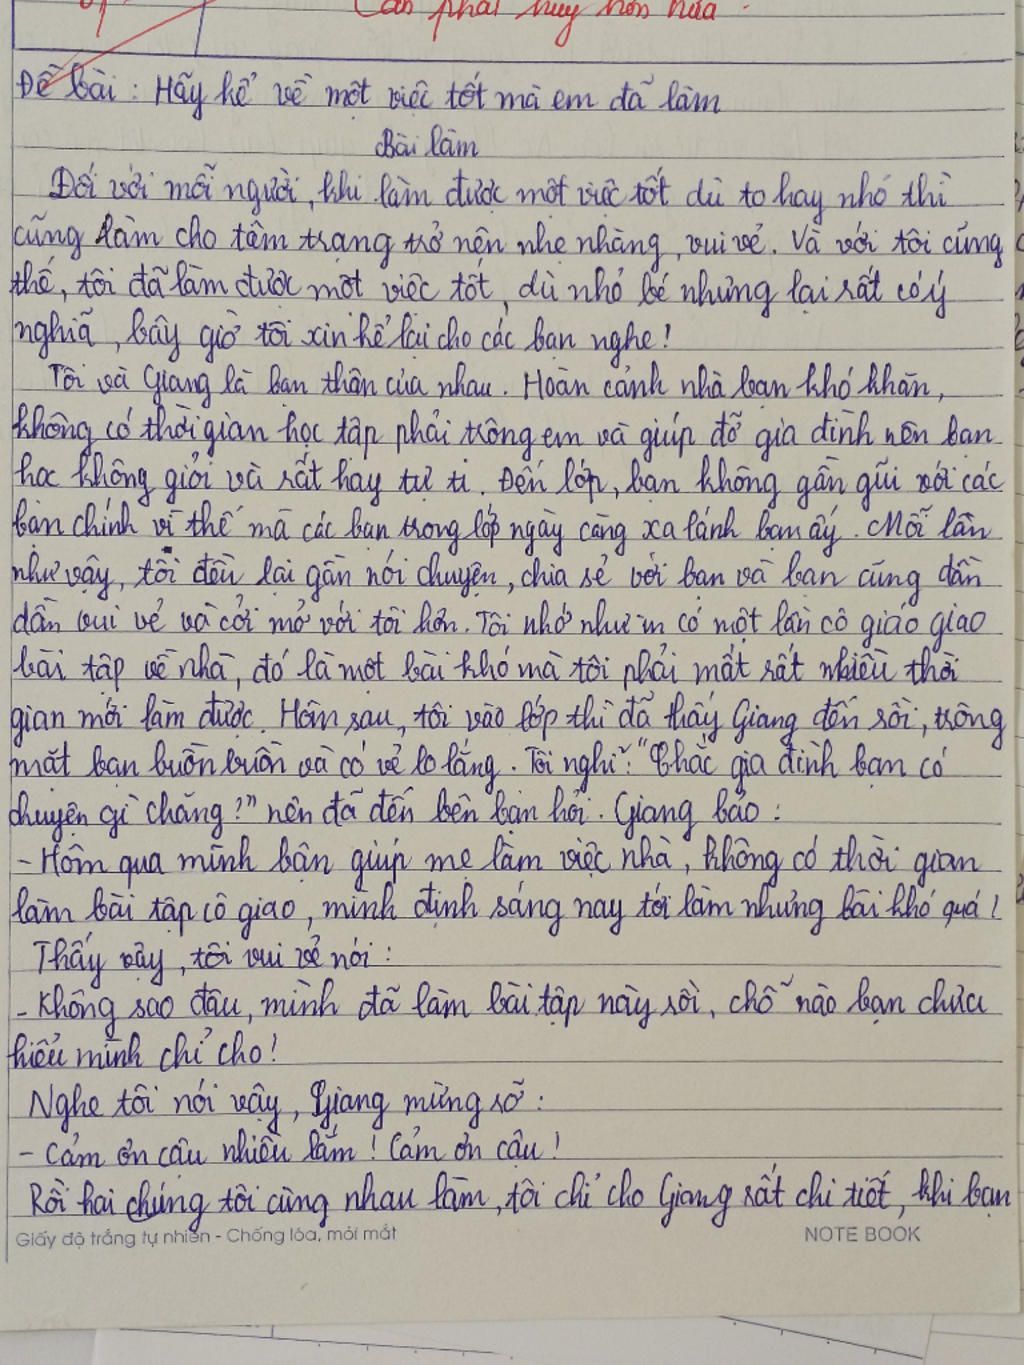 Cần phát huy hơn nữa.
Đề bài: Hãy kể về một việc tốt mà em đã làm
Bài làm
Đối với mỗi người, khi làm được một việc tốt dù to hay nhỏ thì
cũng làm cho tâm trạng trở nên nhẹ nhàng, vui vẻ. Và với tôi cũng
thế, tôi đã làm được một việc tốt, dù nhỏ bé nhưng lại rất có ý
nghĩa, bây giờ tôi xin kể lại cho các bạn nghe!
Tôi và Giang là bạn thân của nhau. Hoàn cảnh nhà bạn khó khăn,
không có thời gian học tập phải trông em và giúp đỡ gia đình nên bạn
học không giỏi và rất hay tự ti. Đến lớp, bạn không gần gũi với các
bạn chính vì thế mà các bạn trong lớp ngày càng xa lánh bạn ấy. Mỗi lần
như vậy, tôi đều lại gần nói chuyện, chia sẻ với bạn và bạn cũng dần
dần vui vẻ và cởi mở với tôi hơn. Tôi nhớ như in có một lần cô giáo giao
bài tập về nhà, đó là một bài khó mà tôi phải mất rất nhiều thời
gian mới làm được. Hôm sau, tôi vào lớp thì đã thấy Giang đến rồi, trông
mặt bạn buồn buồn và có vẻ lo lắng. Tôi nghĩ: "Chắc gia đình bạn có
chuyện gì chăng?" nên đã đến bên bạn hỏi. Giang bảo:
- Hôm qua mình bận giúp mẹ làm việc nhà, không có thời gian
làm bài tập cô giao, mình định sáng nay tới làm nhưng bài khó quá!
Thấy vậy, tôi vui vẻ nói:
- Không sao đâu, mình đã làm bài tập này rồi, chỗ nào bạn chưa
hiểu mình chỉ cho!
Nghe tôi nói vậy, Giang mừng rỡ:
- Cảm ơn cậu nhiều lắm! Cảm ơn cậu!
Rồi hai chúng tôi cùng nhau làm, tôi chỉ cho Giang rất chi tiết, khi bạn
Giấy độ trắng tự nhiên - Chống lóa, mỏi mắt NOTE BOOK